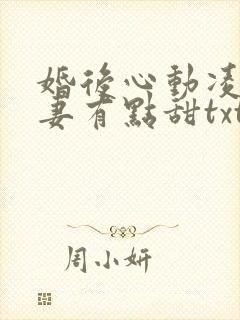 婚後心動凌
妻有點甜txt
周小妍